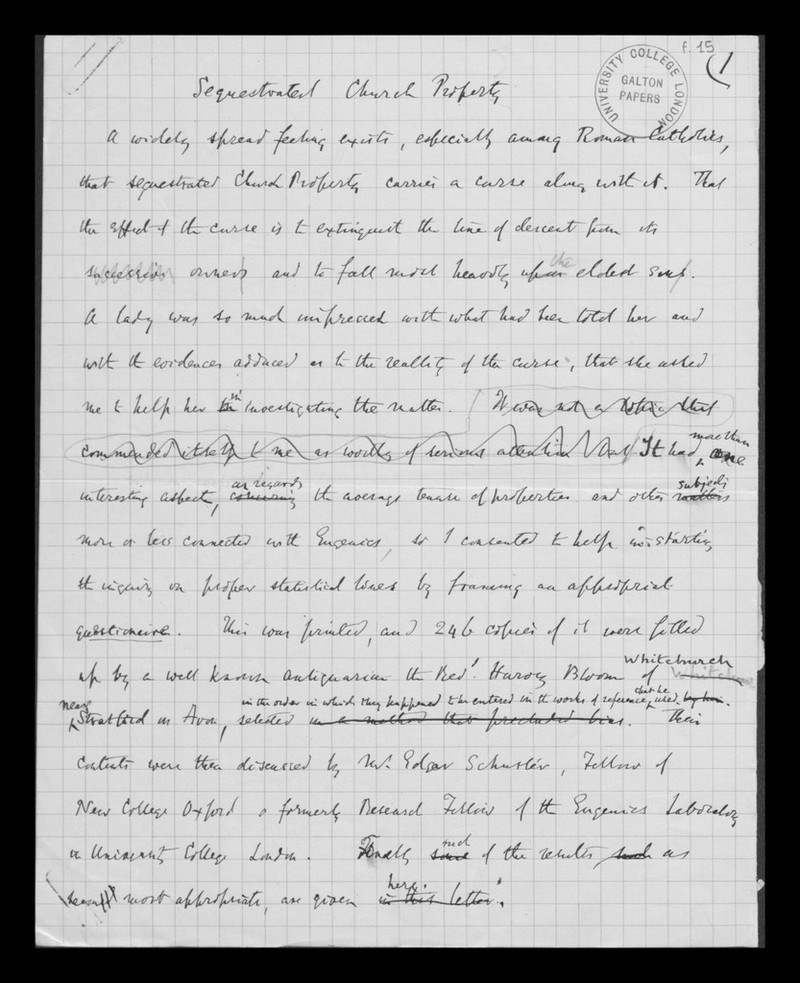 f. 15
1
UNIVERSITY COLLEGE LONDON
GALTON
PAPERS
Sequestrated Church Property
A widely spread feeling exists, especially among Roman Catholics,
that sequestrated Church Property carries a curse along with it. That
the effect of the curse is to extinguish the line of descent from its
successive owners and to fall most heavily upon the eldest sons.
A lady was so much impressed with what had been told her and
with the evidences adduced as to the reality of the curse, that she asked
me to help her in investigating the matter. It was not a topic that
commended itself to me as worthy of serious attention But It had more than one
interesting aspect, concerning as regards the average tenure of properties and other matters subjects
more or less connected with Eugenics, so I consented to help in starting
the inquiry on proper statistical lines by framing an appropriate
questionaire. This was printed, and 246 copies of it were filled
up by a well known antiquarian the Revd. Harvey Bloom of Whitchurch
near Stratford on Avon, selected in a method that precluded bias. in the order in which they happened to be entered in the works of reference that he used by him. Their
contents were then discussed by Mr. Edgar Schuster, Fellow of
New College Oxford & formerly Research Fellow of the Eugenics Laboratory
in University College London. Finally some such of the results such as
seem most appropriate, are given in this letter. here.